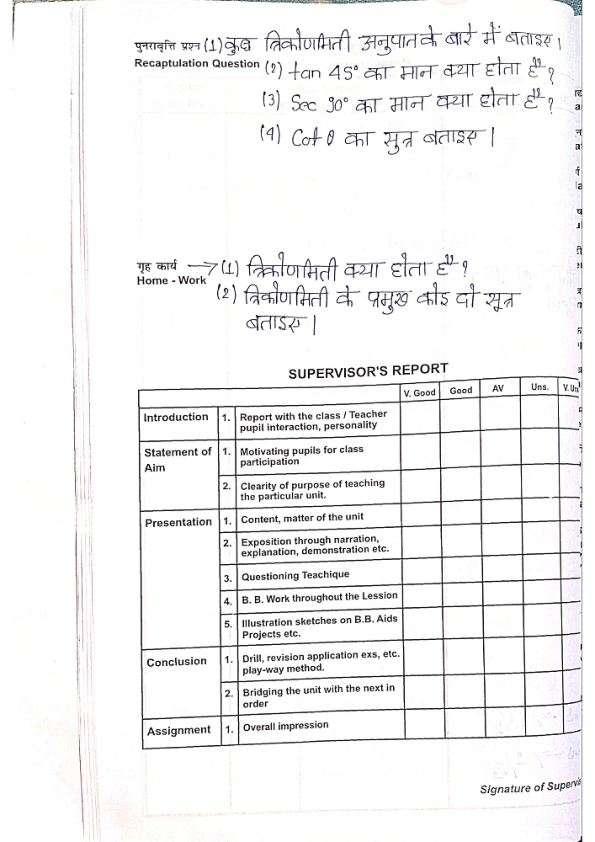 पुनरावृत्ति प्रश्न (1) कुछ त्रिकोणमिती अनुपात के बारे में बताइए।
Recaptulation Question (2) tan 45° का मान क्या होता है?
(3) Sec 90° का मान क्या होता है?
(4) Cot θ का सुत्र बताइए।
गृह कार्य → (1) त्रिकोणमिती क्या होता है?
Home - Work
(2) त्रिकोणमिती के प्रमुख कोइ दो सूत्र
बताइए।
SUPERVISOR'S REPORT
V. Good Good AV Uns. V. Un
Introduction 1. Report with the class / Teacher
pupil interaction, personality
Statement of 1. Motivating pupils for class
Aim participation
2. Clearity of purpose of teaching
the particular unit.
Presentation 1. Content, matter of the unit
2. Exposition through narration,
explanation, demonstration etc.
3. Questioning Teachique
4. B. B. Work throughout the Lession
5. Illustration sketches on B.B. Aids
Projects etc.
Conclusion 1. Drill, revision application exs, etc.
play-way method.
2. Bridging the unit with the next in
order
Assignment 1. Overall impression
Signature of Supervis